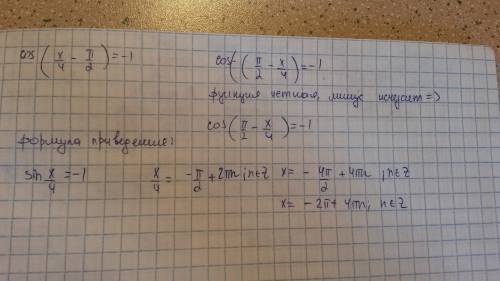 cos(x/4 - π/2) = -1
cos(-(π/2 - x/4)) = -1
функция четная, минус исчезает =>
cos(π/2 - x/4) = -1
формула приведения:
sin x/4 = -1    x/4 = -π/2 + 2πn; n∈Z    x = - 4π/2 + 4πn; n∈Z
x = - 2π + 4πn; n∈Z